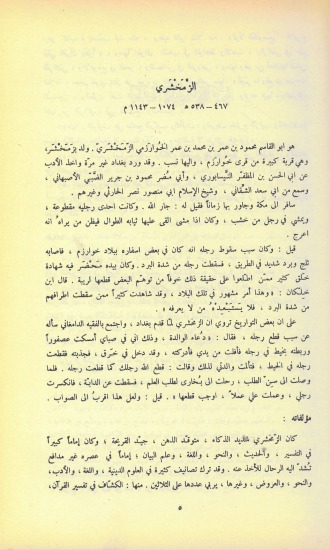 الزَّمَخْشَري
٤٦٧ – ٥٣٨ ه ١٠٧٤ – ١١٤٣ م
هو ابو القاسم محمود بن عمر بن محمد بن عمر الخوارزمي الزّمخشريّ. ولد بزمخشر،
وهي قرية كبيرة من قرى خوارزم، واليها نسب. وقد ورد بغداد غير مرّة واخذ الأدب
عن ابي الحسن بن المظفّر النيسابوري، وأبي مضر محمود بن جرير الضّبّي الأصبهاني،
وسمع من ابي سعد الشقّاني، وشيخ الإسلام ابي منصور نصر الحارثي وغيرهم.
سافر الى مكة وجاور بها زماناً فقيل له: جار الله. وكانت احدى رجليه مقطوعة،
ويمشي في رجل من خشب، وكان اذا مشى القى عليها ثيابه الطوال فيظن من يراه انه
اعرج.
قيل: وكان سبب سقوط رجله انه كان في بعض اسفاره ببلاد خوارزم، فاصابه
ثلج وبرد شديد في الطريق، فسقطت رجله من شدة البرد. وكان بيده مَحْضَر فيه شهادة
خلق كثير ممّن اطّلعوا على حقيقة ذلك خوفاً من توهّم البعض قطعها لريبة. قال ابن
خلكان: «وهذا أمر مشهور في تلك البلاد، وقد شاهدت كثيراً ممن سقطت اطرافهم
من شدة البرد، فلا يستبعده من لا يعرفه».
على ان بعض التواريخ تروي ان الزمخشري لمّا قدم بغداد، واجتمع بالفقيه الدامغاني سأله
عن سبب قطع رجله، فقال: «دعاء الوالدة، وذلك اني في صباي أمسكت عصفوراً
وربطته بخيط في رجله فأفلت من يدي فأدركته، وقد دخل في خرق، فجذبته فقطعت
رجله في الخيط، فتألّمت والدتي لذلك وقالت: قطع الله رجلك كما قطعت رجله. فلما
وصلت الى سنّ الطلب، رحلت الى بُخارى لطلب العلم، فسقطت عن الدابّة، فانكسرت
رجلي، وعملت علي عملاً، اوجب قطعها». قيل: ولعل هذا اقرب الى الصواب.
مؤلفاته:
كان الزّمخشريّ شديد الذكاء، متوقّد الذهن، جيّد القريحة؛ وكان إماماً كبيراً
في التفسير، والحديث، والنحو، واللغة، وعلم البيان؛ إماماً في عصره غير مدافع
تُشدّ اليه الرحال للأخذ عنه. وقد ترك تصانيف كثيرة في العلوم الدينية، واللغة، والأدب،
والنحو، والعروض، وغيرها، يربي عددها على الثلاثين. منها: الكشّاف في تفسير القرآن،
٥